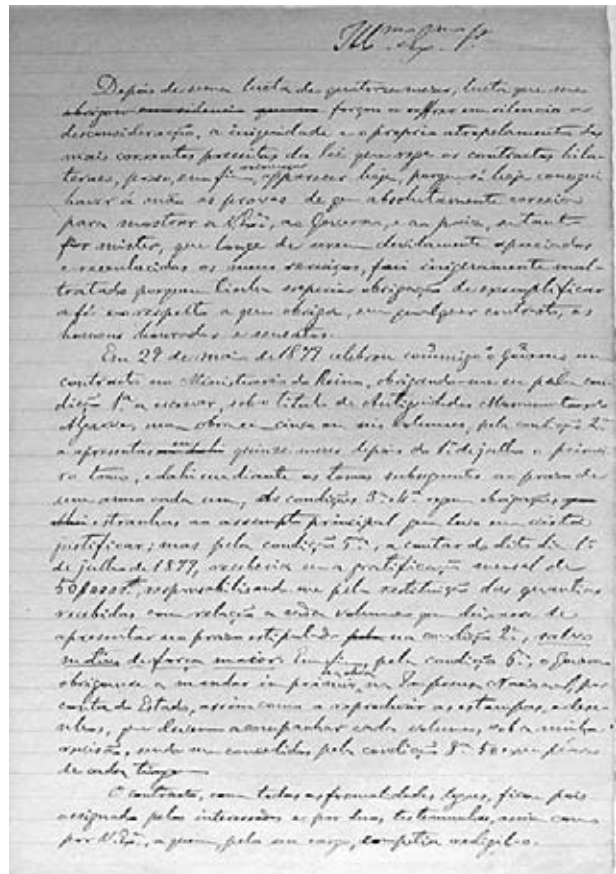 Ill.mo Ex.mo Sr.
Depois de uma lucta de quatorze mezes, lucta que me
obrigou em silencio forçou a soffrer em silencio a
desconsideração, a iniquidade e o proprio atropelamento dos
mais correntes preceitos da lei que rege os contractos bila-
teraes, posso, em fim, apparecer hoje, porque só hoje consegui
haver á mão as provas de que absolutamente carecia
para mostrar a V. Ex.ª, ao Governo, e ao paiz, se tanto
fôr mister, que longe de serem devidamente apreciados
e reconhecidos os meus serviços, fui iniquamente mal-
tratado por quem tinha superior obrigação de exemplificar
a fé e o respeito a que obriga, em qualquer contracto, os
homens honrados e sensatos.
Em 29 de maio de 1877 celebrou commigo o Governo um
contracto no Ministerio do Reino, obrigando-me eu pela con
dição 1.ª a escrever, sob o titulo de Antiguidades Monumentaes do
Algarve, uma obra em cinco ou seis volumes, pela condição 2.ª
a apresentar quinze mezes depois do 1.º de julho o primei
ro tomo, e dahi em diante os tomos subsequentes no prazo de
um anno cada um. As condições 3.ª e 4.ª
estranhas ao assumpto principal que tenho em vista
justificar; mas pela condição 5.ª, a contar do dito dia 1.º
de julho de 1877, receberia eu a gratificação mensal de
responsabilisando-me pela restituição das quantias
recebidas com relação a cada volume que deixasse de
apresentar no prazo estipulado na condição 2.ª, salvo
motivo de força maior. Em fim, pela condição 6.ª, o Governo
obrigou-se a mandar imprimir a obra na Imprensa Nacional, por
conta do Estado, assim como a reproduzir as estampas, e dese-
nhos, que devem acompanhar cada volume, sob a minha
revisão, sendo-me concedidos pela condição 8.ª 50 exemplares
de cada tomo
O contracto, com todas as formalidades legaes, ficou pois
assignado pelos interessados e por duas testemunhas, assim como
por V. Ex.ª, a quem, pelo seu cargo, competia redigil-o.